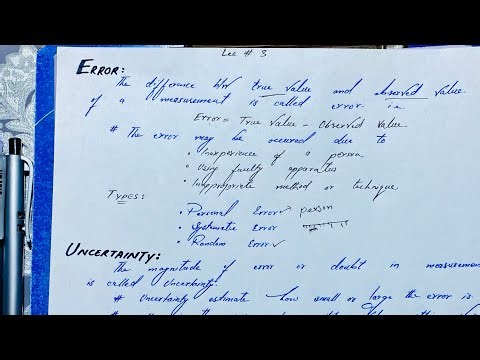 Lec # 3
ERROR:
The difference b/w true value and observed value
of a measurement is called error. i.e
Error = True Value - Observed Value.
# The error may be occured due to
• Inexperience of a person
• Using faulty apparatus
• Inappropriate method or technique
TYPES:
• Personal Error✓ person
• Systematic Error
• Random Error✓
UNCERTAINTY:
The magnitude of error or doubt in measurement
is called Uncertainty.
# Uncertainty estimate how small or large the error is.